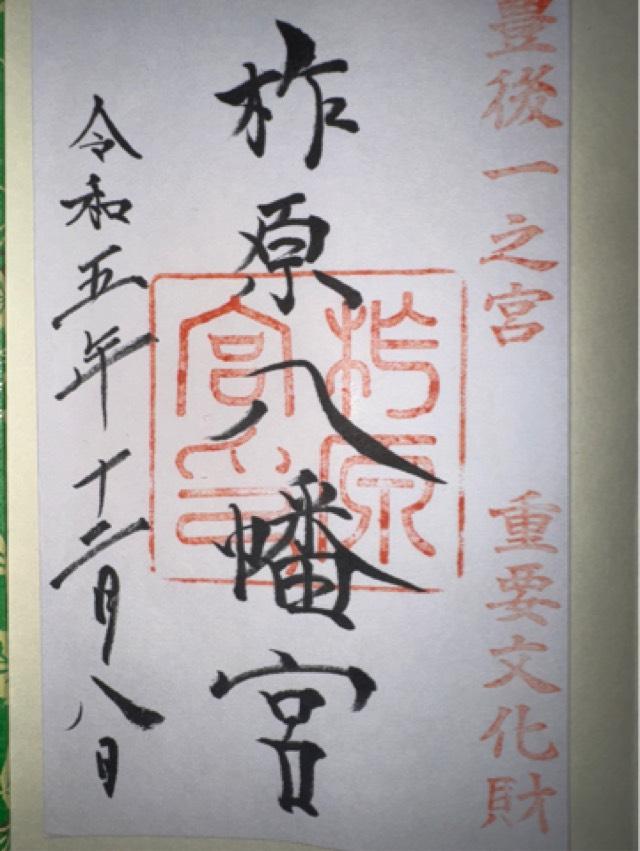 豊後一之宮 重要文化財
柞原八幡宮
柞原宮印
令和五年十二月八日